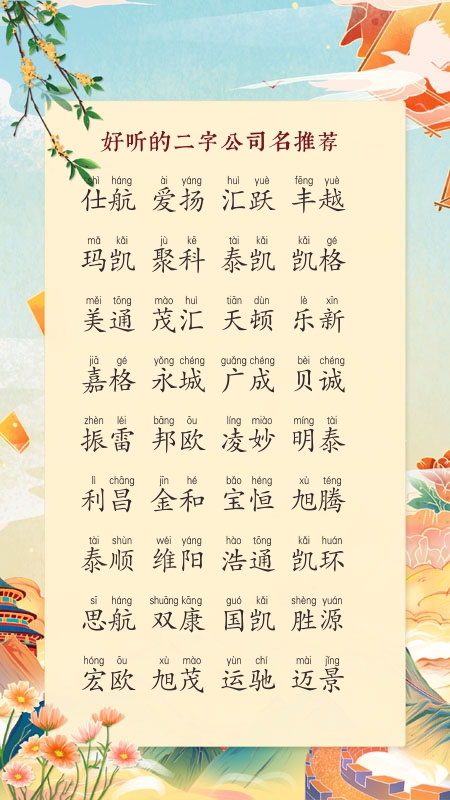 好听的二字公司名推荐
shì háng ài yáng huì yuè fēng yuè
仕航 爱扬 汇跃 丰越
mǎ kǎi jù kē tài kǎi kǎi gé
玛凯 聚科 泰凯 凯格
měi tōng mào huì tiān dùn lè xīn
美通 茂汇 天顿 乐新
jiā gé yǒng chéng guǎng chéng bèi chéng
嘉格 永城 广成 贝诚
zhèn léi bāng ōu líng miào míng tài
振雷 邦欧 凌妙 明泰
lì chāng jīn hé bǎo héng xù téng
利昌 金和 宝恒 旭腾
tài shùn wéi yáng hào tōng kǎi huán
泰顺 维阳 浩通 凯环
sī háng shuāng kāng guó kǎi shèng yuán
思航 双康 国凯 胜源
hóng ōu xù mào yùn chí mài jǐng
宏欧 旭茂 运驰 迈景